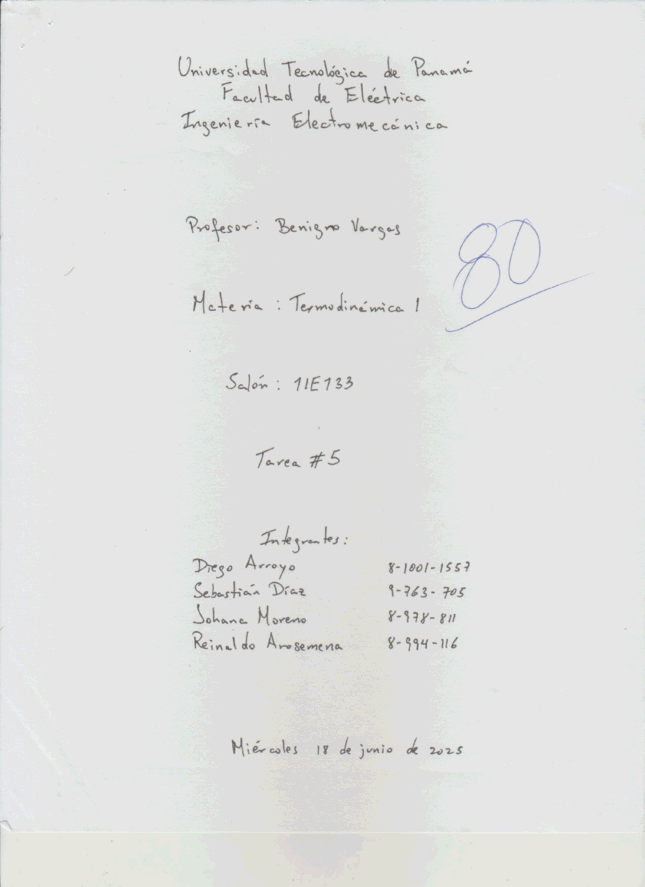 Universidad Tecnológica de Panamá
Facultad de Eléctrica
Ingeniería Electromecánica
Profesor: Benigno Vargas
80
Materia : Termodinámica 1
Salón : 1IE133
Tarea #5
Integrantes:
Diego Arroyo 8-1001-1557
Sebastián Díaz 9-763-705
Johana Moreno 8-978-811
Reinaldo Arosemena 8-994-116
Miércoles 18 de junio de 2025